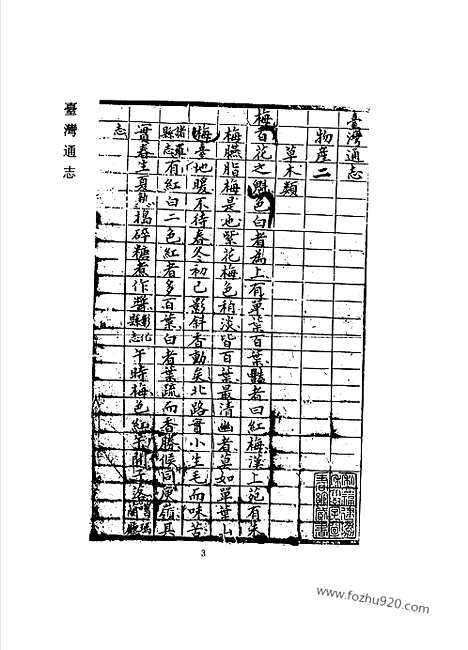 臺灣通志
臺灣通志
物產二
草木類
梅百花之魁色白者為上有單葉百葉豔者曰紅梅漢上苑有朱
梅臙脂梅是也紫花梅色稍淡皆百葉最清幽者莫如單葉山
梅臺地暖不待春冬初已影斜香動矣北路實小生毛而味苦
諸羅縣志有紅白二色紅者多百葉白者葉疏而香勝候同庾嶺其
實春生夏熟搗碎糖煮作漿彰化縣志午時梅色紅午開子落
志
3
www.fozhu920.com